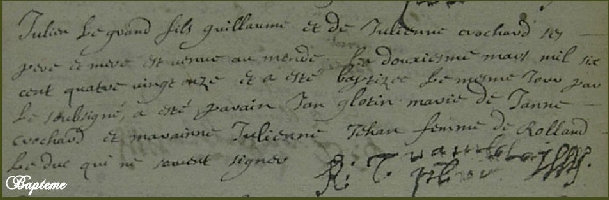 Julien Legrand fils guillaume et de Julienne crochard ses
pere et mere est venue au monde Le douxiesme mars mil six
cent quatre vingt onze et a eté baptizee Le mesme Jour par
Le soubsigné, a eté parain Jan glotin marie de Janne
crochard et marainne Julienne Jehan femme de Rolland
Le duc qui ne savent signer
Bapteme